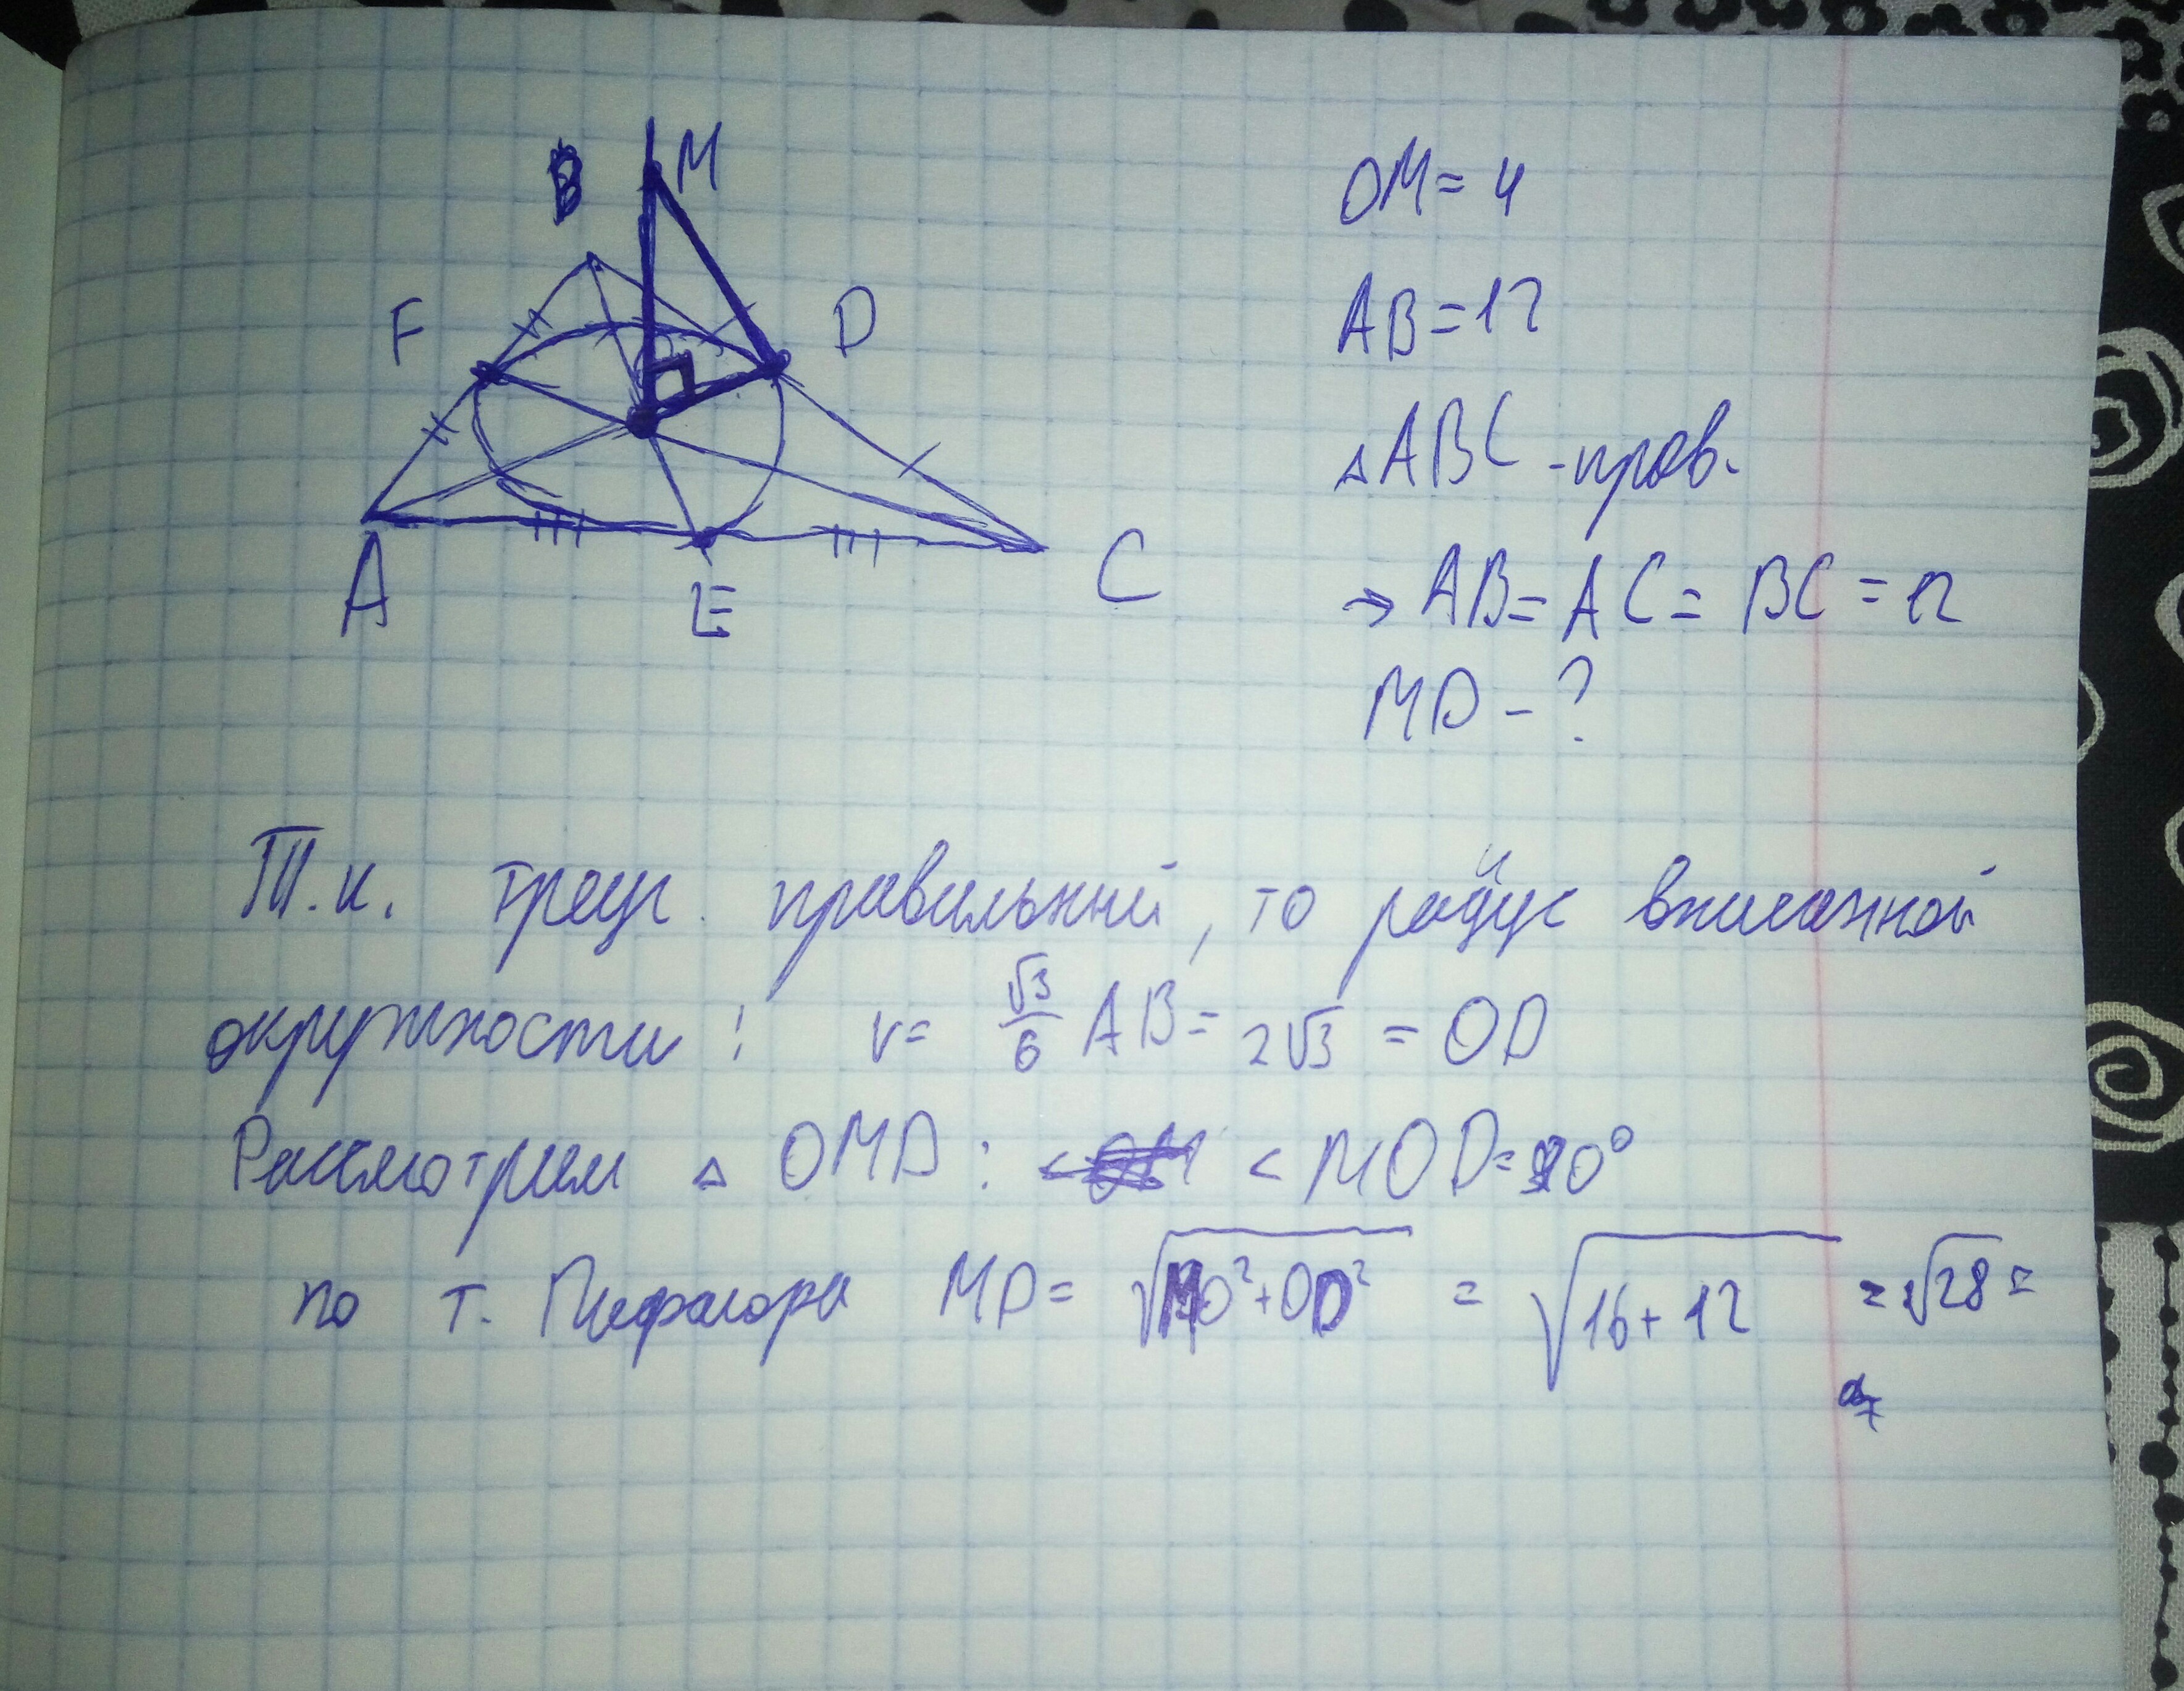 B
M
F
D
A
E
C
OM = 4
AB = 12
△ABC - прав.
→ AB = AC = BC = 12
MD - ?
Т.к. треуг. правильный, то радиус вписанной
окружности : r = √3/6 AB = 2√3 = OD
Рассмотрим △ OMD : < MOD = 90°
по т. Пифагора MD = √MO²+OD² = √16+12 = √28 =